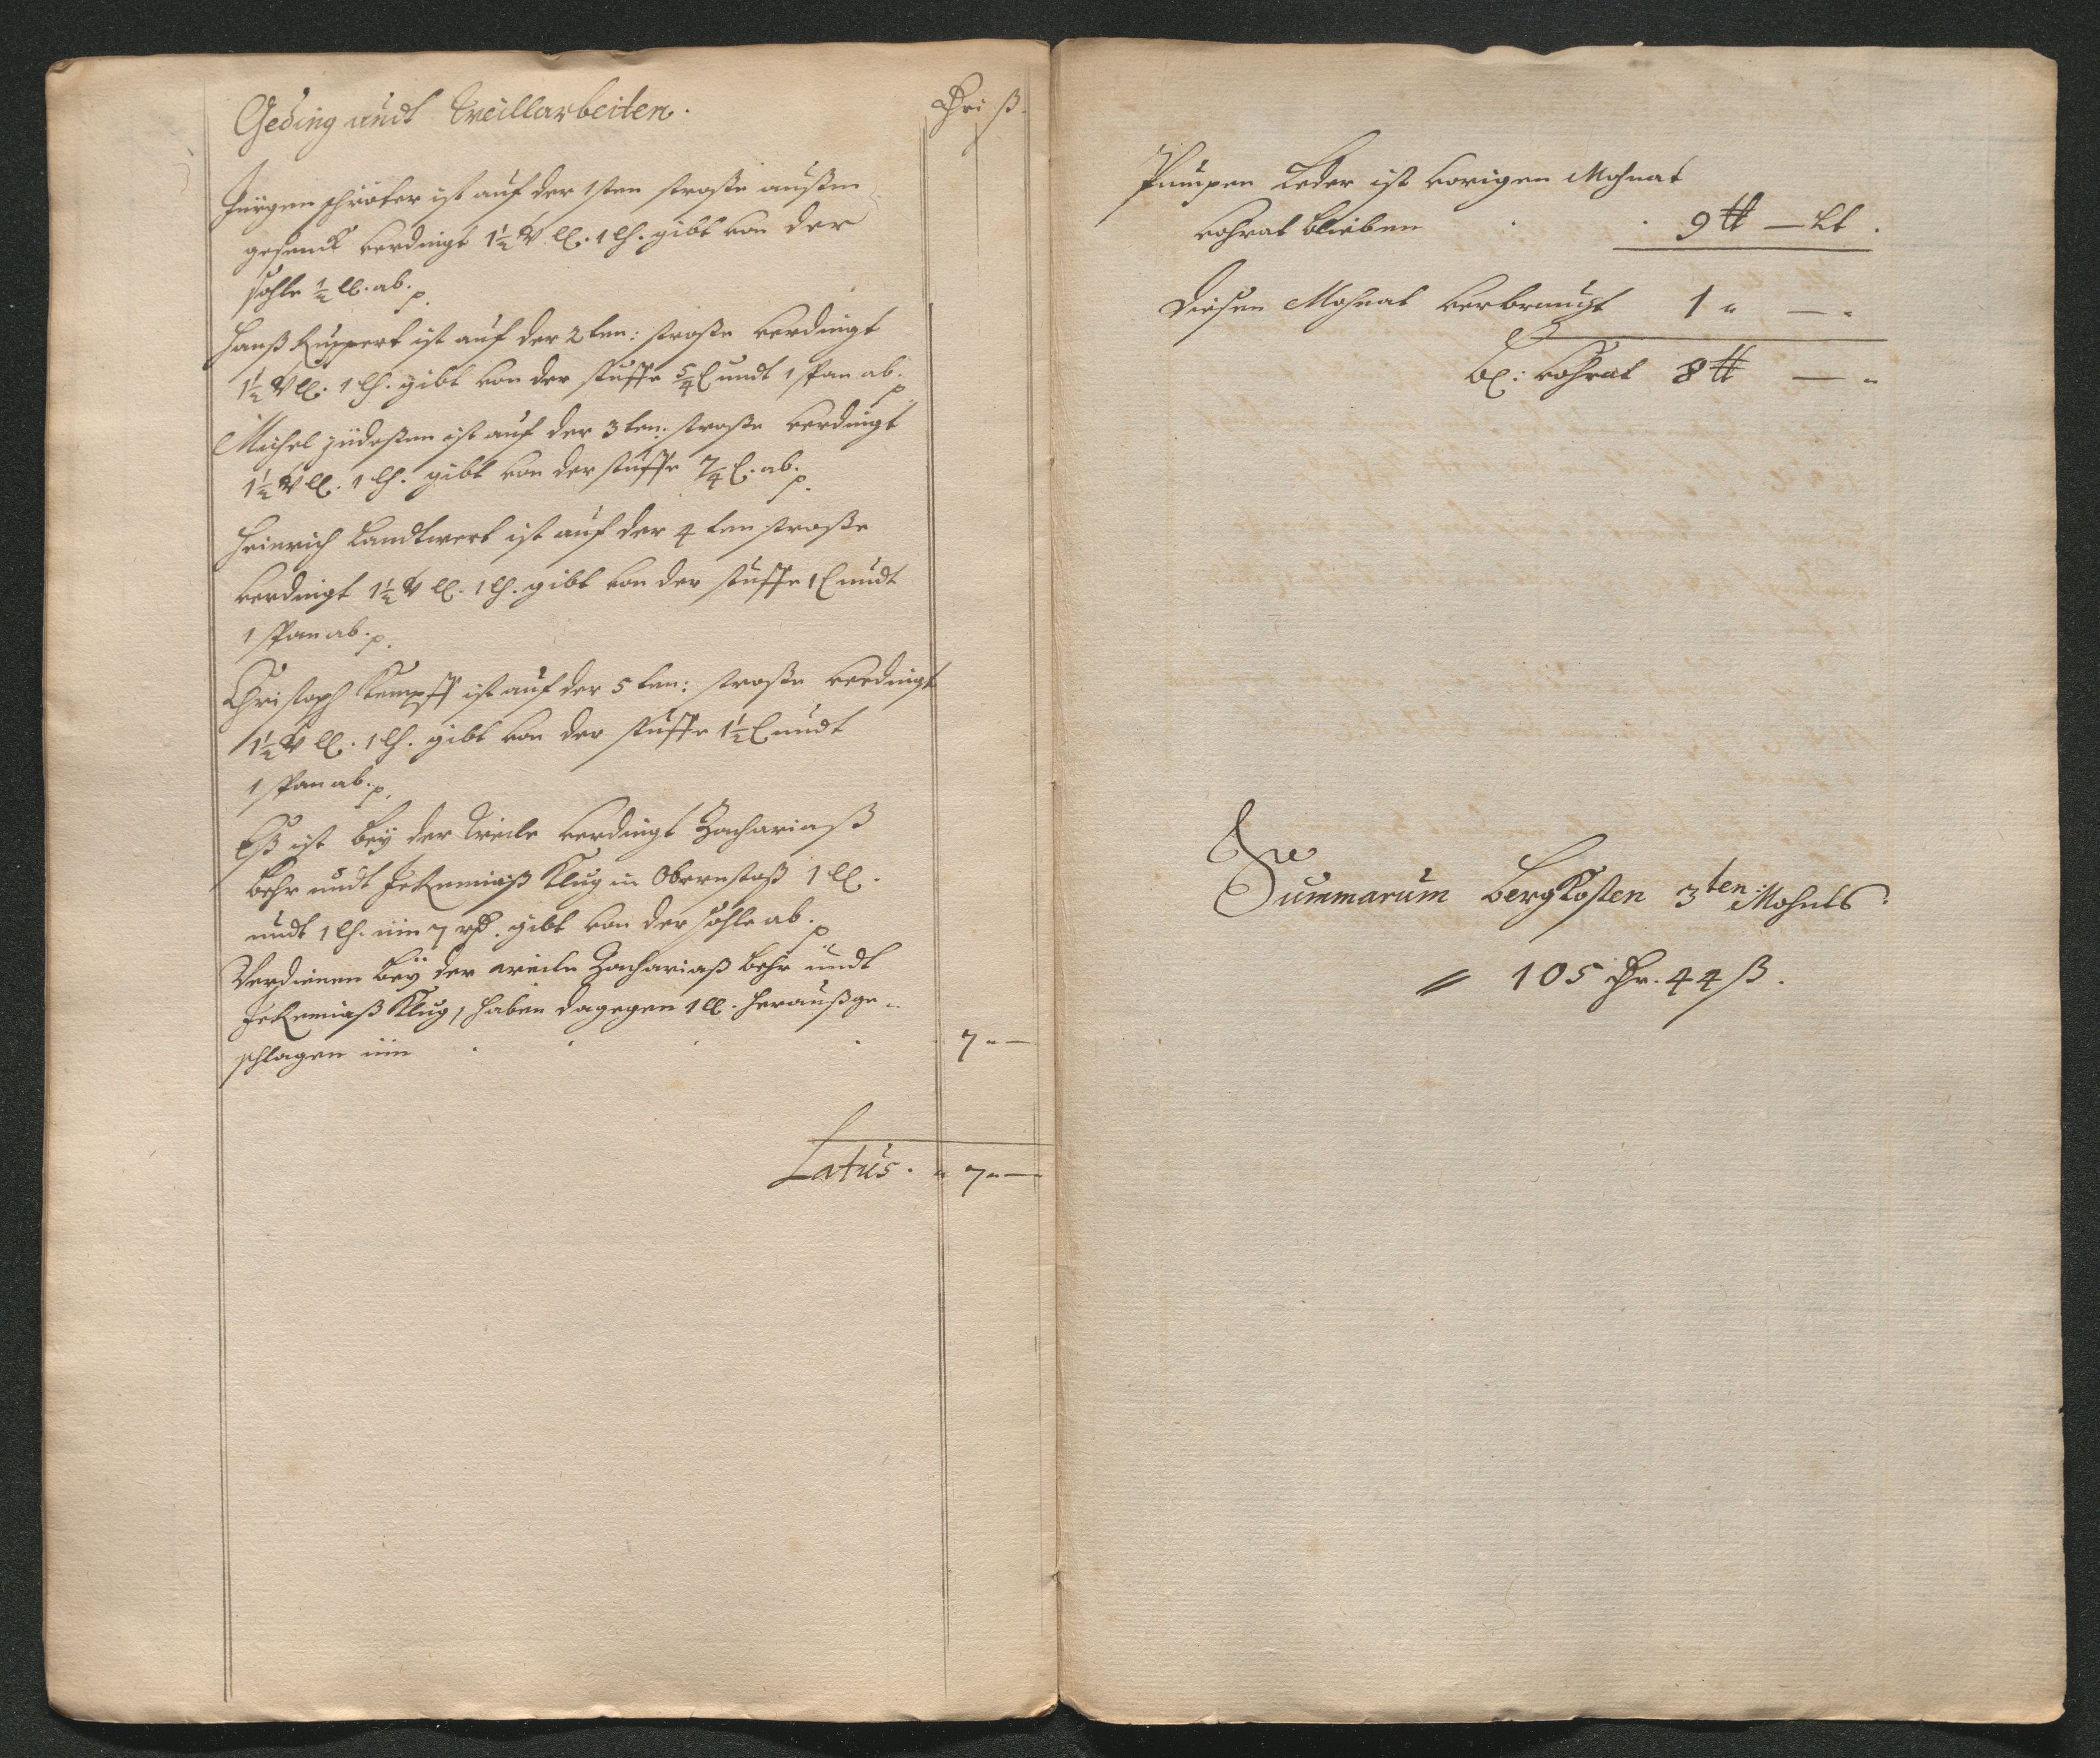 Geding undt Weillarbeiten.
Thr ß.
Jürgen schröter ist auf der 1sten straße außm
gesenck verdingt 1½ ll. 1 lh. gibt von der
sohle ½ ll. ab. p.
Hanß Ruppert ist auf der 2ten: straße verdingt
1½ ll. 1 lh. gibt von der stuffe 5/4 l undt 1 span ab. p.
Michel ist auf der 3ten: straße verdingt
1½ ll. 1 lh. gibt von der stuffe 7/4 l. ab. p.
Heinrich Landtwert ist auf der 4ten straße
verdingt 1½ ll. 1 lh. gibt von der stuffe 1 l undt
1 span ab. p.
Christoph Kempff ist auf der 5ten: straße verdingt
1½ ll. 1 lh. gibt von der stuffe 1½ l undt
1 span ab. p.
Eß ist beÿ der Weile verdingt Zachariaß
Behr undt Jeremiaß Klug in Oberstoß 1 ll.
undt 1 lh. üm 7 gibt von der sohle ab. p
Verdienen beÿ der weile Zachariaß Behr undt
Jeremiaß Klug, haben dagegen 1 ll. heraußge-
schlagen üm . . . . . 7 " —
Latus. " 7 " —
Pumpen Leder ist vorigen Mohnat
vohrat blieben . . 9 ℔ — Lt.
diesen Mohnat verbraucht 1 " — "
bl: vohrat 8 ℔ — "
Summarum bergKosten 3ten: Mohnts.
" 105 Thr. 44 ß.